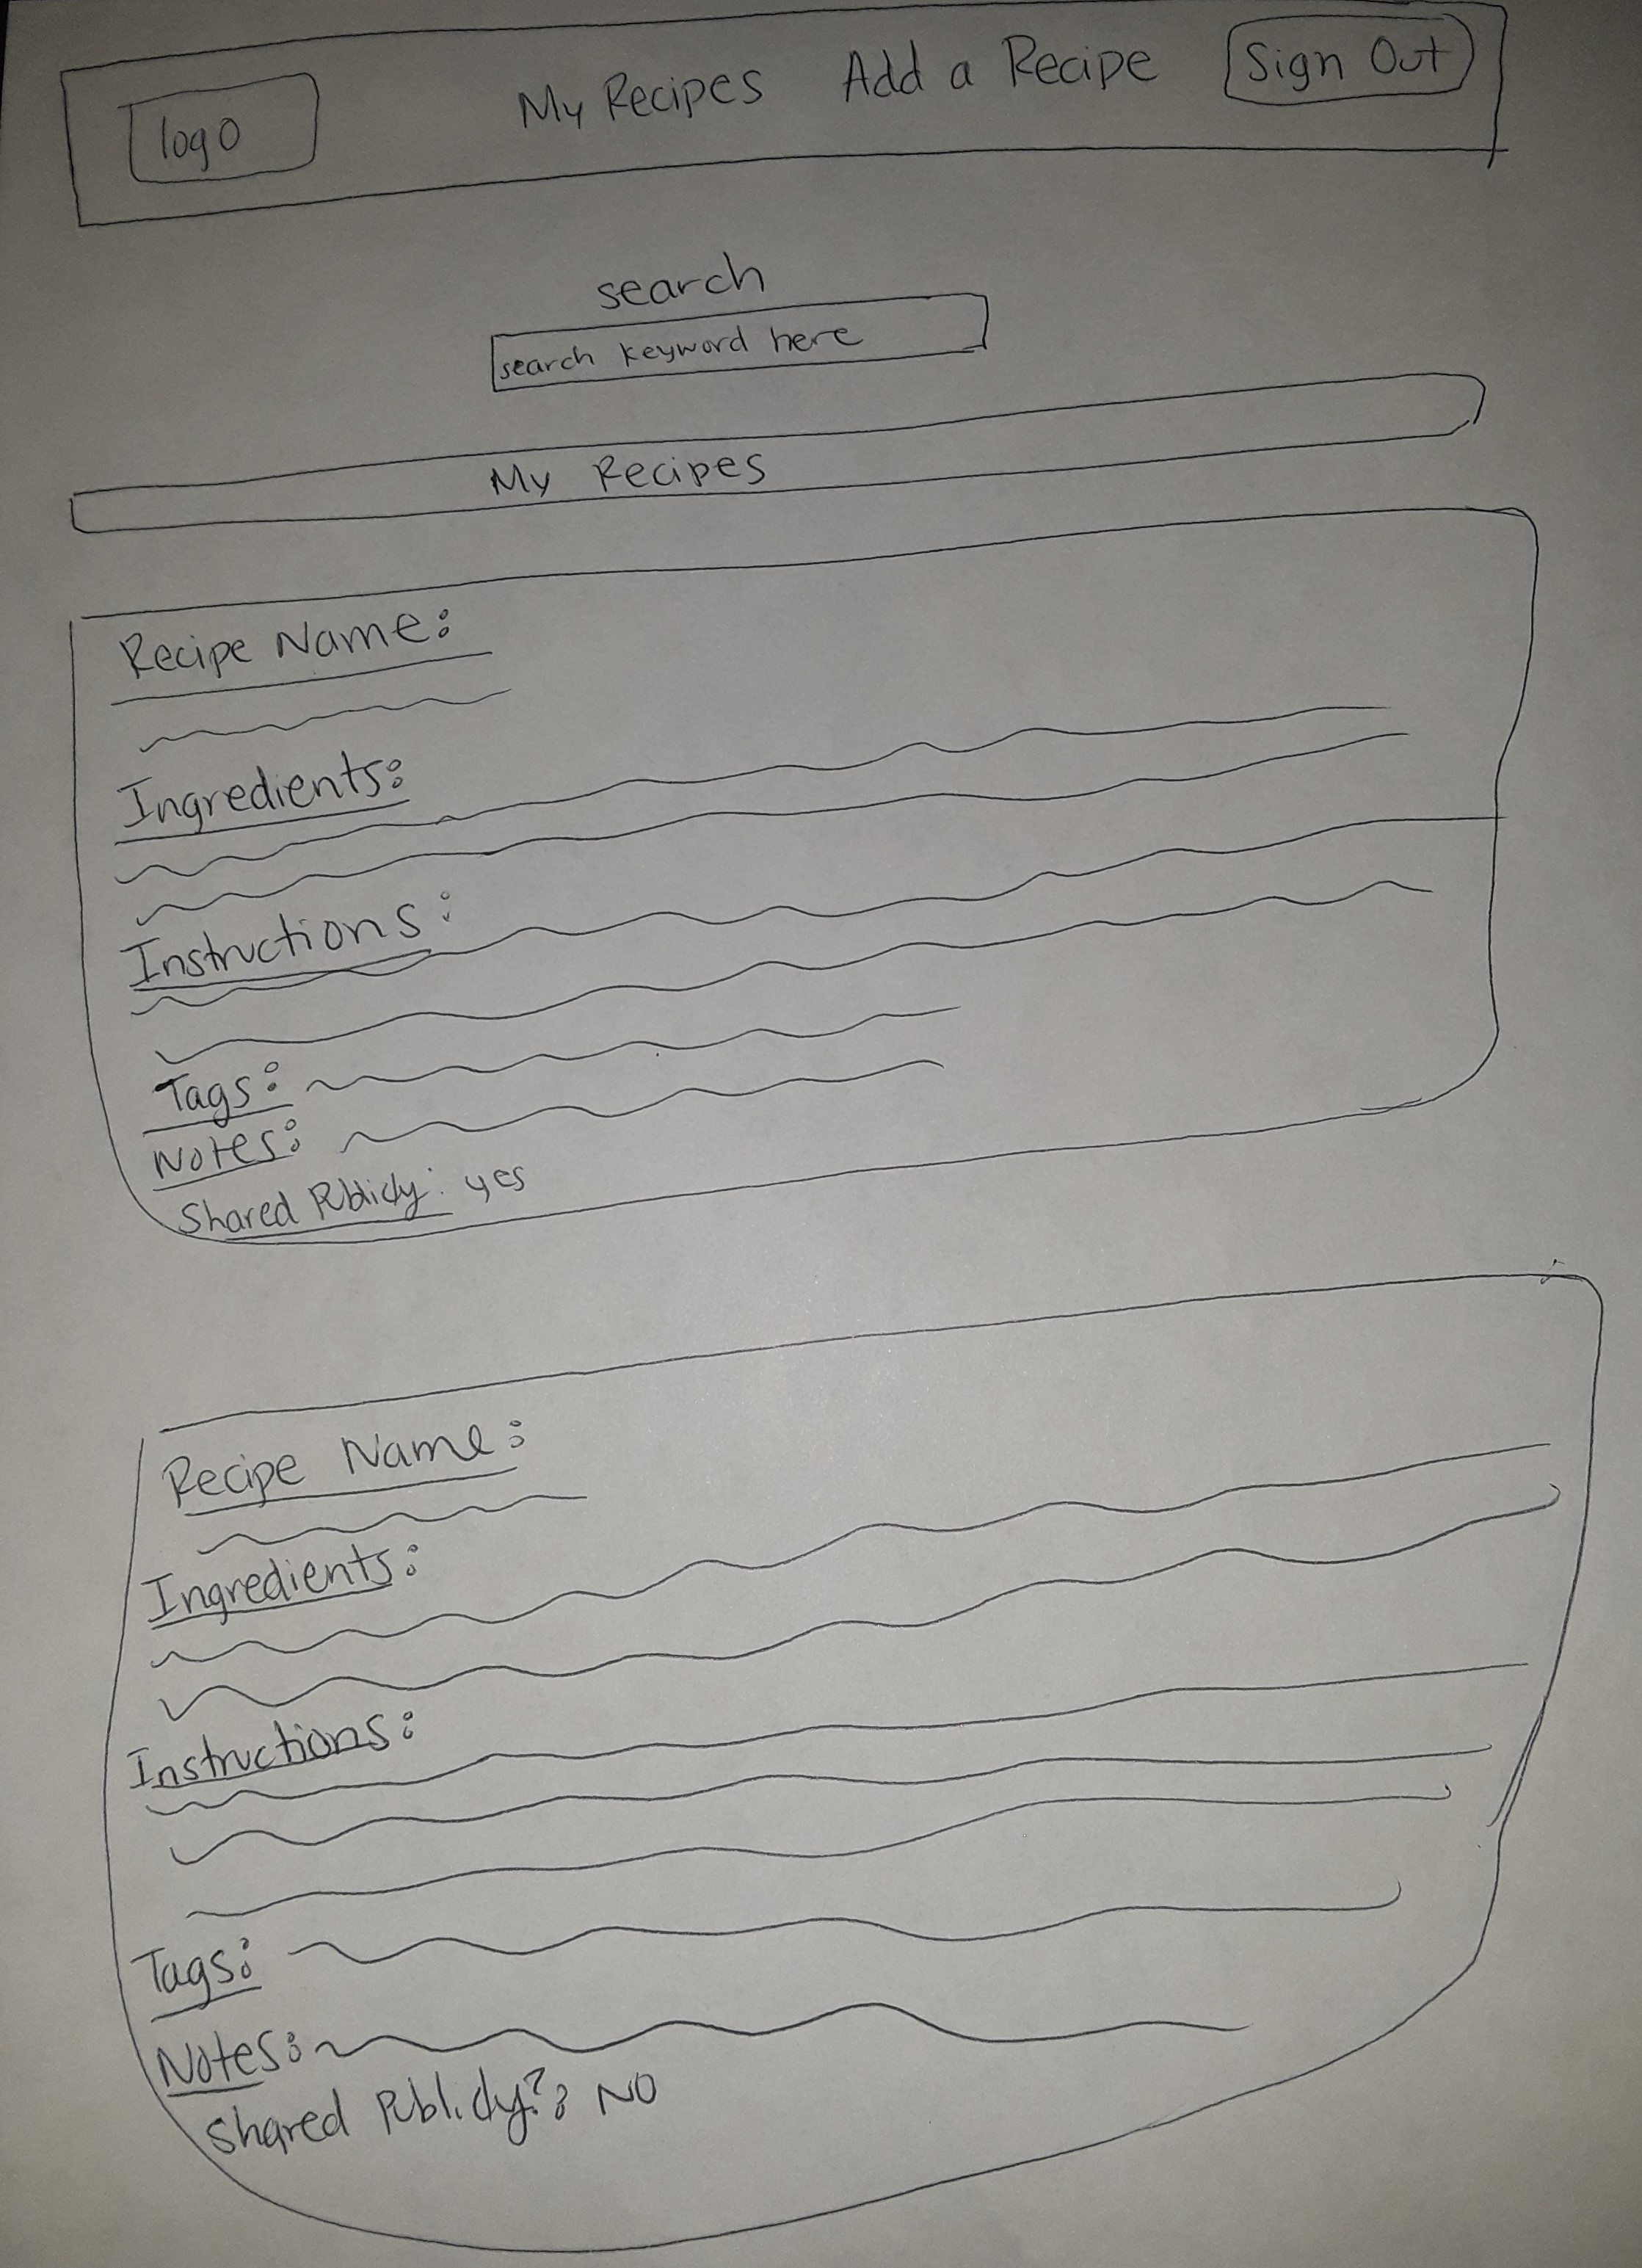 logo My Recipes Add a Recipe Sign Out
search
search keyword here
My Recipes
Recipe Name:
Ingredients:
Instructions:
Tags:
Notes:
Shared Publicly: yes
Recipe Name:
Ingredients:
Instructions:
Tags:
Notes:
Shared Publicly?: NO